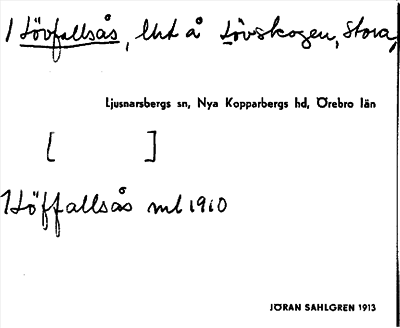 1 Lövfallsås, lht å Lövskogen, Stora,
Ljusnarsbergs sn, Nya Kopparbergs hd, Örebro län
[ ]
1 Löffallsås ml 1910
JÖRAN SAHLGREN 1913